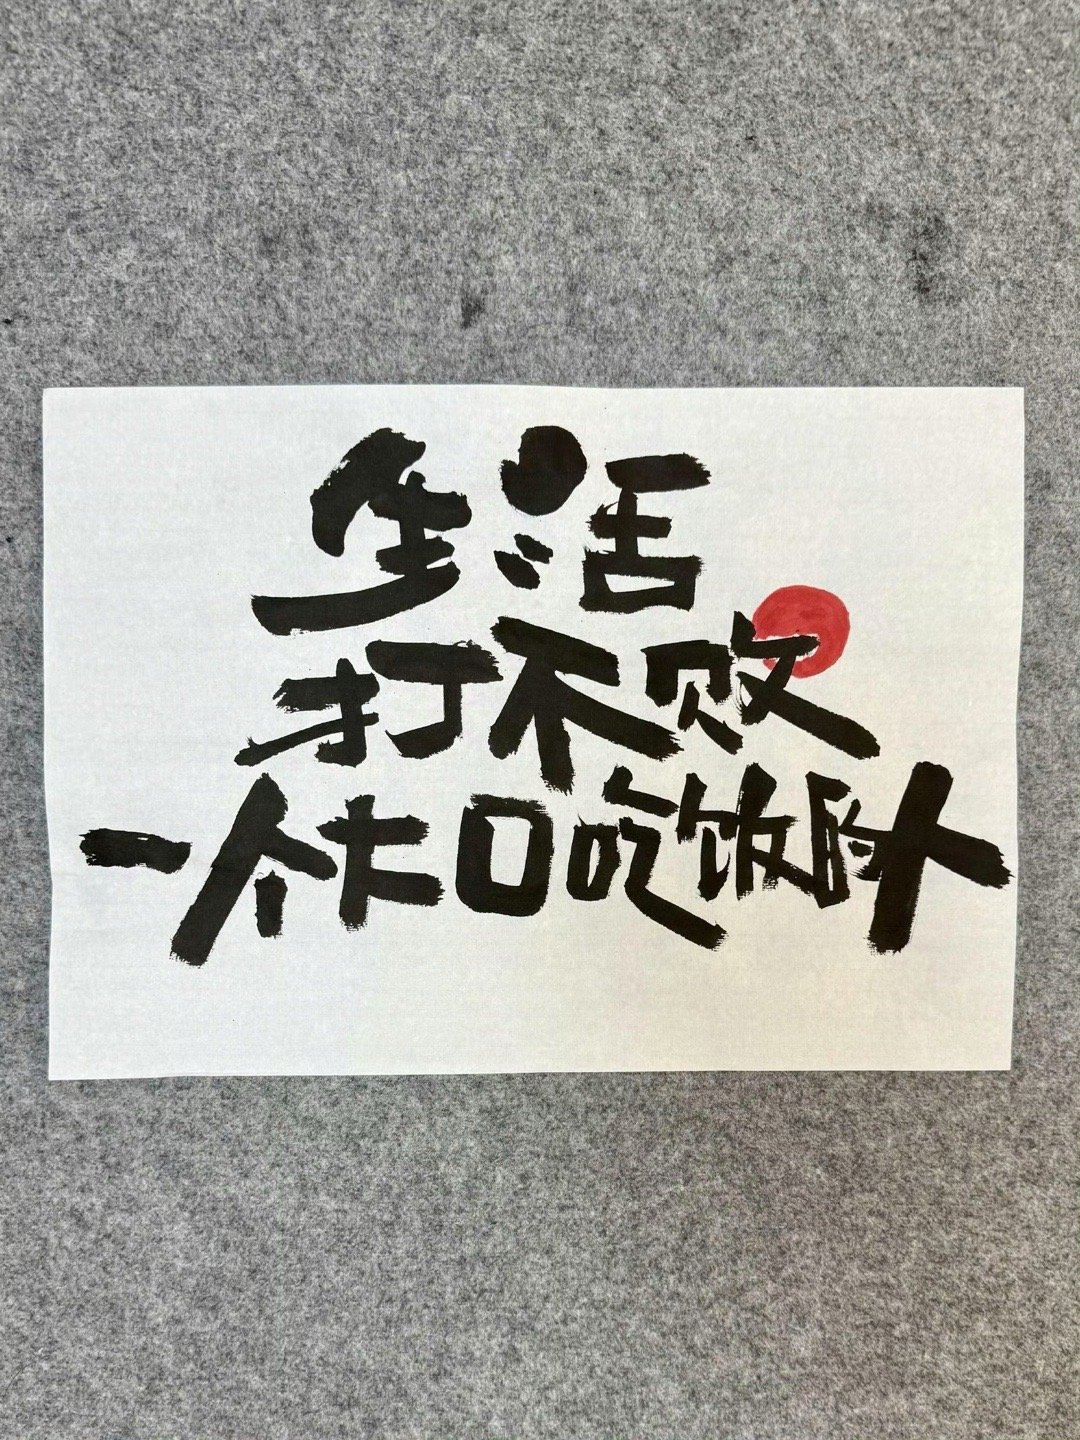 生活
打不败
一个大口吃饭的人